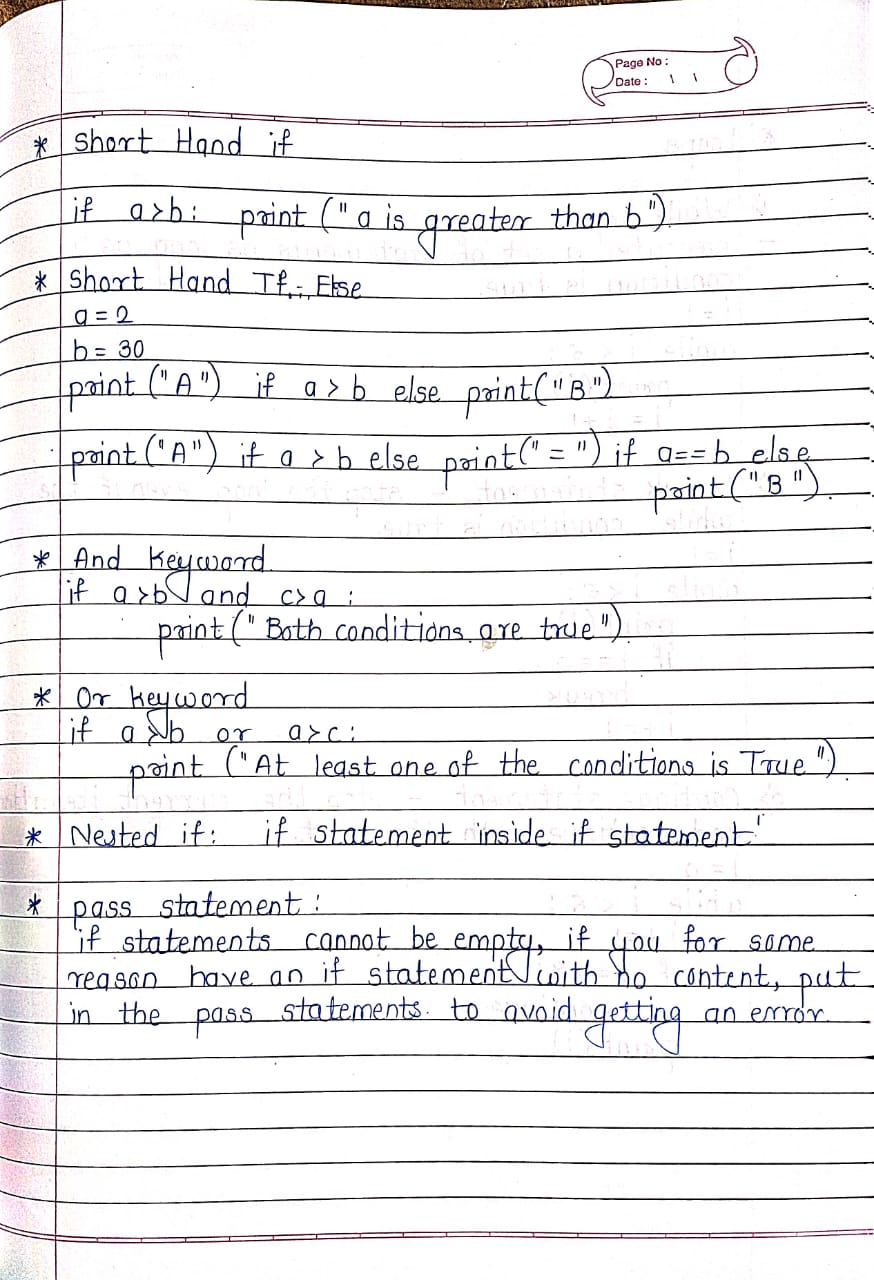 Page No :
Date :
* Short Hand if
if a>b: print ("a is greater than b")
* Short Hand If... Else
a = 2
b = 30
print ("A") if a > b else print("B")
print ("A") if a > b else print("=") if a==b else
print("B")
* And keyword
if a>b and c>a :
print ("Both conditions are true")
* Or keyword
if a>b or a>c:
print ("At least one of the conditions is True")
* Nested if: if statement inside if statement'
* pass statement :
if statements cannot be empty, if you for some
reason have an if statement with no content, put
in the pass statements. to avoid getting an error.